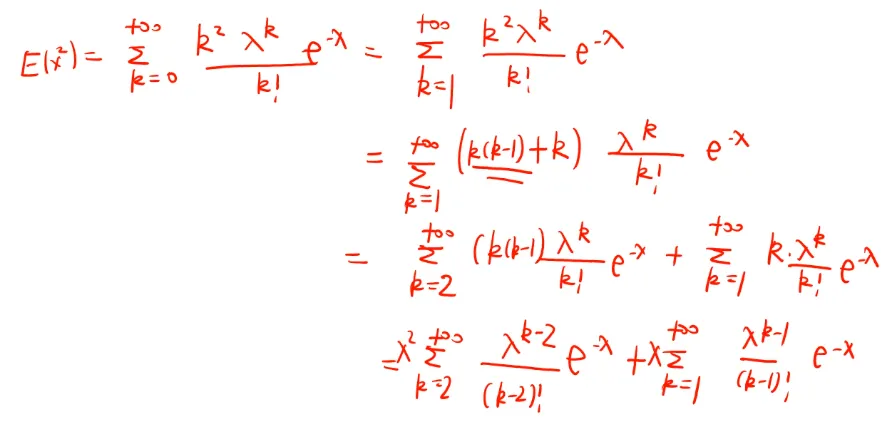 E(x²) = Σ_{k=0}^{+∞} \frac{k² λ^k}{k!} e^{-λ} = Σ_{k=1}^{+∞} \frac{k² λ^k}{k!} e^{-λ}
= Σ_{k=1}^{+∞} (k(k-1)+k) \frac{λ^k}{k!} e^{-λ}
= Σ_{k=2}^{+∞} (k(k-1) \frac{λ^k}{k!} e^{-λ} + Σ_{k=1}^{+∞} k·\frac{λ^k}{k!} e^{-λ}
= λ² Σ_{k=2}^{+∞} \frac{λ^{k-2}}{(k-2)!} e^{-λ} + λ Σ_{k=1}^{+∞} \frac{λ^{k-1}}{(k-1)!} e^{-λ}